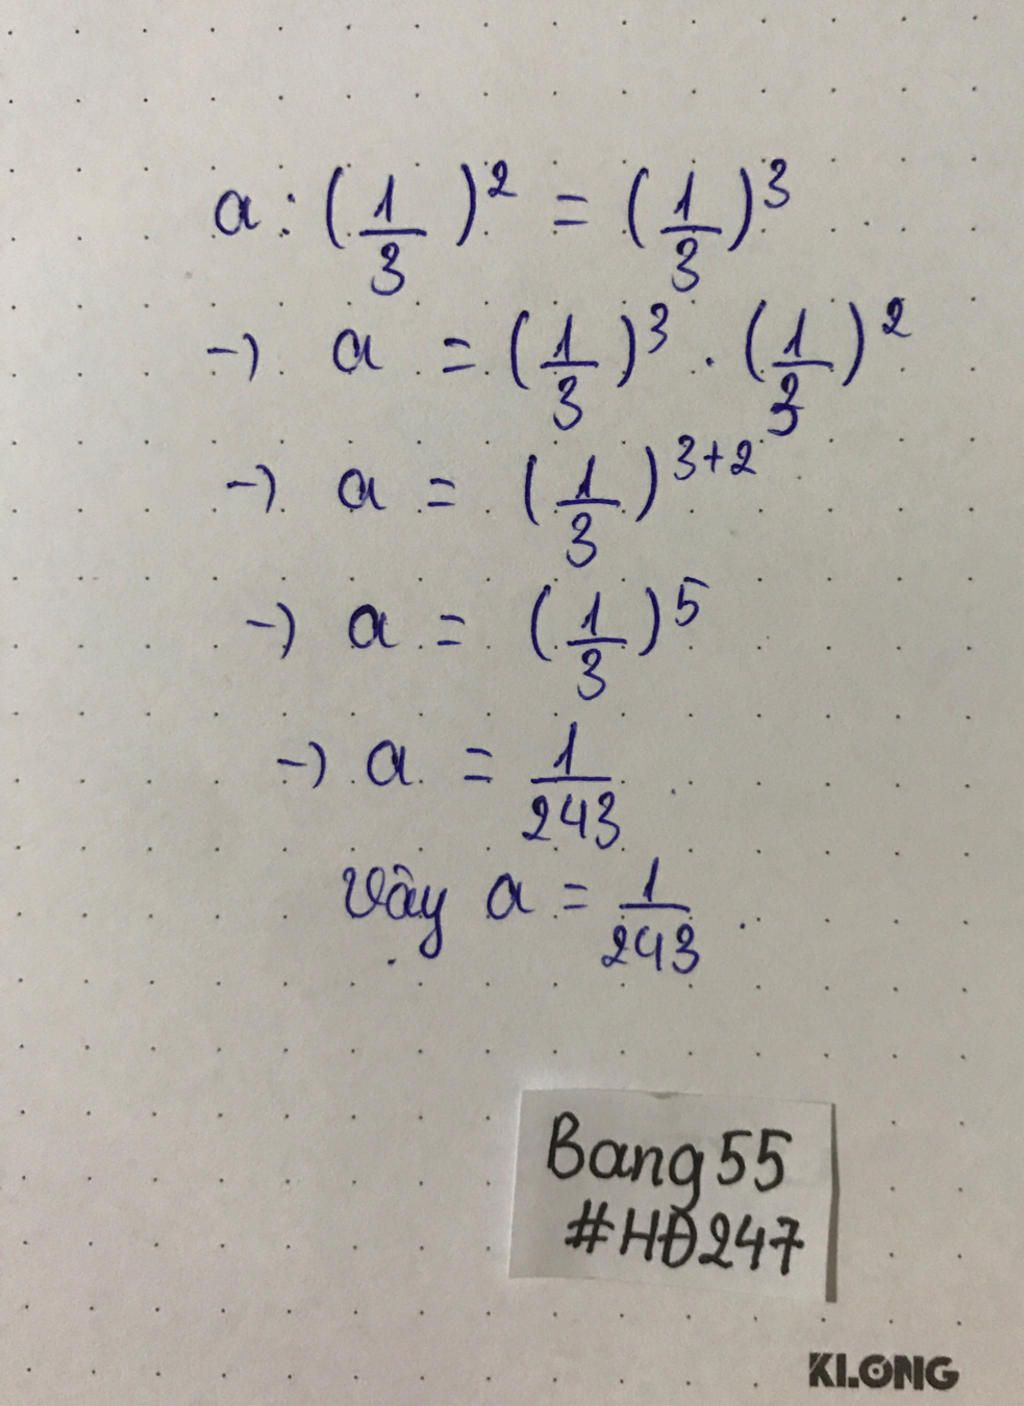 a : (1/3)² = (1/3)³
→ a = (1/3)³ . (1/3)²
→ a = (1/3)³⁺²
→ a = (1/3)⁵
→ a = 1/243
Vậy a = 1/243 .
Bang55
#HĐ247
KLONG